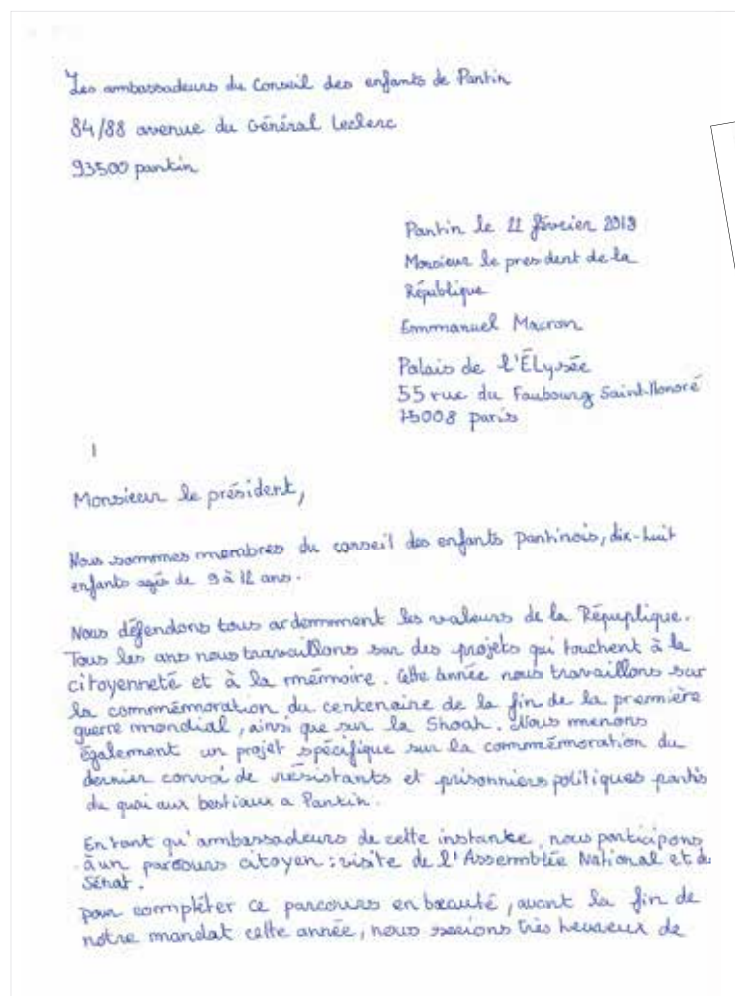 Les ambassadeurs du Conseil des enfants de Pantin
84/88 avenue du Général Leclerc
93500 pantin
Pantin le 11 février 2018
Monsieur le president de la
République
Emmanuel Macron
Palais de l'Élysée
55 rue du Faubourg Saint-Honoré
75008 paris
Monsieur le président,
Nous sommes membres du conseil des enfants pantinois, dix-huit
enfants agés de 9 à 12 ans.
Nous défendons tous ardemment les valeurs de la Répuplique.
Tous les ans nous travaillons sur des projets qui touchent à la
citoyenneté et à la mémoire. Cette année nous travaillons sur
la commémoration du centenaire de la fin de la première
guerre mondial, ainsi que sur la Shoah. Nous menons
également un projet spécifique sur la commémoration du
dernier convoi de résistants et prisonniers politiques partis
du quai aux bestiaux a Pantin.
En tant qu'ambassadeurs de cette instante, nous participons
à un parcours citoyen : visite de l'Assemblée National et du
Sénat.
pour complèter ce parcours en beauté, avant la fin de
notre mandat cette année, nous serions très heureux de